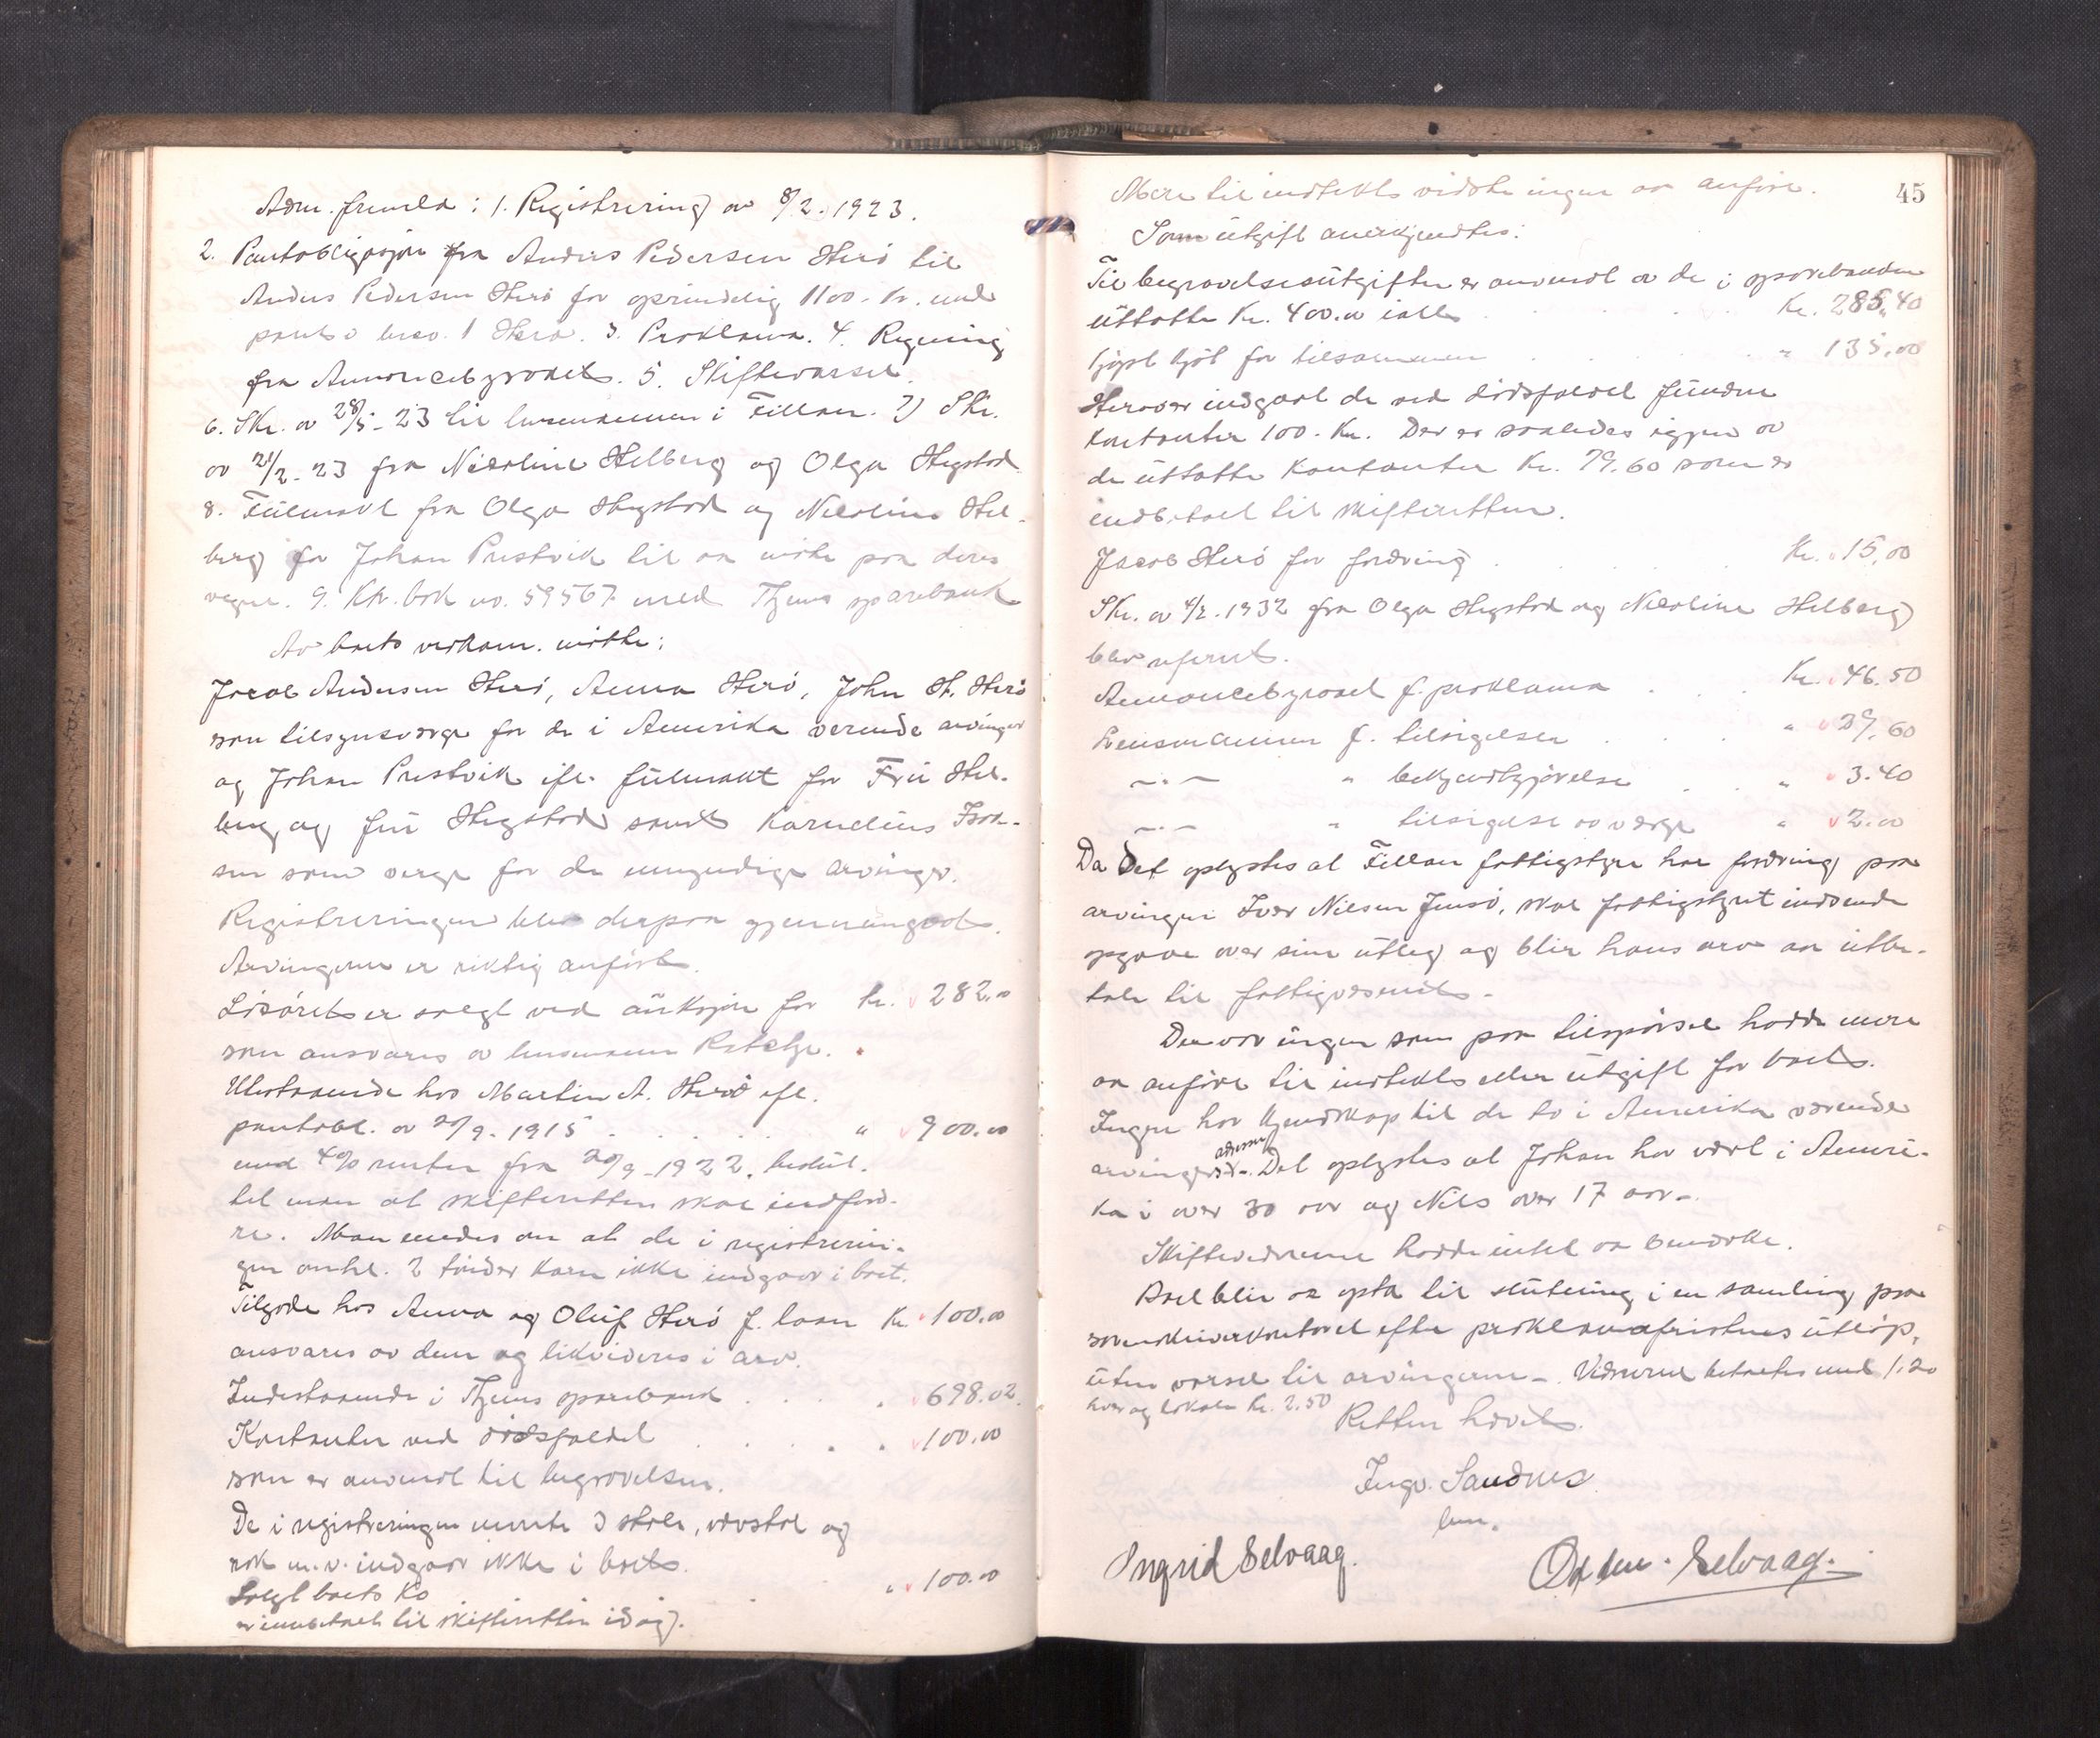 Adm. fremla: 1. Registrering av 8/2. 1923.
2. Pantobligasjon fra Anders Pedersen Herö til
Anders Pedersen Herö for oprindelig 1100.- kr. med
pant i brno. 1 Herö. 3. Proklama. 4. Regning
fra Annoncebyraaet. 5. Skiftevarsel.
6. Skr. av 28/5- 23 til lensmannen i Fillan. 7) Skr.
av 21/2- 23 fra Nicoline Helberg og Olga Hegstad
8. Fuldmakt fra Olga Hegstad og Nicoline Hel-
berg for Johan Prestvik til aa möte paa deres
vegne. 9. Ktr. bok no. 59567 med Hjems sparebank
Av boets vedkom. mötte:
Jacob Andersen Herö, Anna Herö, John H. Herö
som tilsynsverge for de i Amerika værende arvinger
og Johan Prestvik ifl. fuldmakt for Fru Hel-
berg og fru Hegstad samt Kornelius Isak-
sen som verge for de umyndige arvinger.
Registreringen blev derpaa gjennemgaat.
Arvingerne er riktig anfört.
Lösöret er solgt ved auksjon for kr. 282.00
som ansvares av lensmann
Utestaaende hos Martin A. Herö ifl.
pantobl. av 20/9. 1915 . . . . " 900.00
med 4% renter fra 20/9-1922. beslut-
tet man at skifteretten skal indford-
re. Man enedes om at de i registrerin-
gen omhl. 2 tönder korn ikke indgaar i boet.
Tilgode hos Anna og Oluf Herö f. laan Kr. 100.00
ansvares av dem og likvideres i arv.
Indestaaende i Hjems sparebank . . . . 698.02
Kontanter ved dödsfaldet . . . . . 100.00
som er anvendt til begravelsen.
De i registreringen nevnte 3 stoler, vevstol og
rok m.v. indgaar ikke i boet.
Solgt boets ko . . " 100.00
er innbetalt til skifteretten idag.
45
Mere til indtekt vidste ingen aa anföre.
Som utgift anerkjendtes:
Til begravelsesutgifter er anvendt av de i sparebanken
uttatte Kr. 400.00 ialt . . . . Kr. 285.40
kjöpt kjöt for tilsammen . . . " 135.00
Herover indgaat de ved dödsfaldet fundne
kontanter 100.- Kr. Der er saaledes igjen av
de uttatte kontanter Kr. 79.60 som er
indbetalt til skifteretten.
Jacob Herö for fordring . . . . . Kr. 15.00
Skr. av 4/2. 1932 fra Olga Hegstad og Nicoline Helberg
blev referert.
Annoncebyraaet f. proklama . . . Kr. 46.50
Lensmannen f. tilsigelsen . . . . " 39.60
—"— " bekjendtgjörelse . . " 3.40
—"— " tilsigelse av verge " 2.00
Da det oplystes at Fillan fattigstyre har fordring paa
arvingen Iver Nilsen Jensö, skal fattigstyret indsende
opgave over sine utleg og blir hans arv aa utbe-
tale til fattigvesenet.-
Der var ingen som paa tilspörsel hadde mere
aa anföre til indtekt eller utgift for boet.
Ingen har kjendskap til de to i Amerika værende
arvingers adresser.- Det oplystes at Johan har vært i Ameri-
ka i over 30 aar og Nils over 17 aar.-
Skiftevidnerne hadde intet aa bemerke.
Boet blir aa opta til slutning i en samling paa
sorenskriverkontoret efter proklamafristens utlöp,
uten varsel til arvingerne.- Vidnerne betaltes med 1.20
hver og lokale kr. 2.50
Retten hævet.
Ingv. Sandnes
lm.
Ingrid Selvaag. Selvaag.